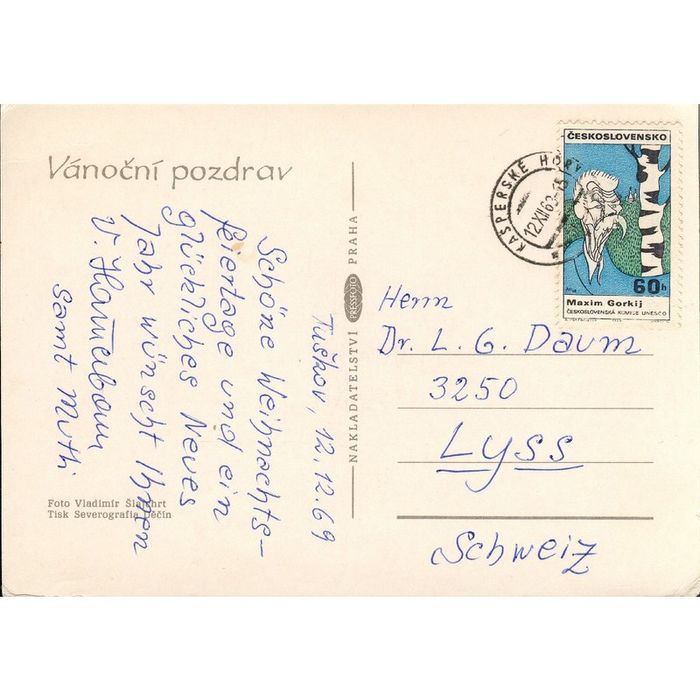 Vánoční pozdrav
Tuškov, 12.12.69
Schöne Weihnachts-
feiertage und ein
glückliches Neues
Jahr wünscht Ihnen
V.
samt Mutti
Foto Vladimír
Tisk Severografia Děčín
NAKLADATELSTVÍ PRESSFOTO PRAHA
KAŠPERSKÉ HORY
12.XII.69
ČESKOSLOVENSKO
60h
Maxim Gorkij
ČESKOSLOVENSKÁ KOMISE UNESCO
Herrn
Dr. L. G. Daum
3250
Lyss
Schweiz